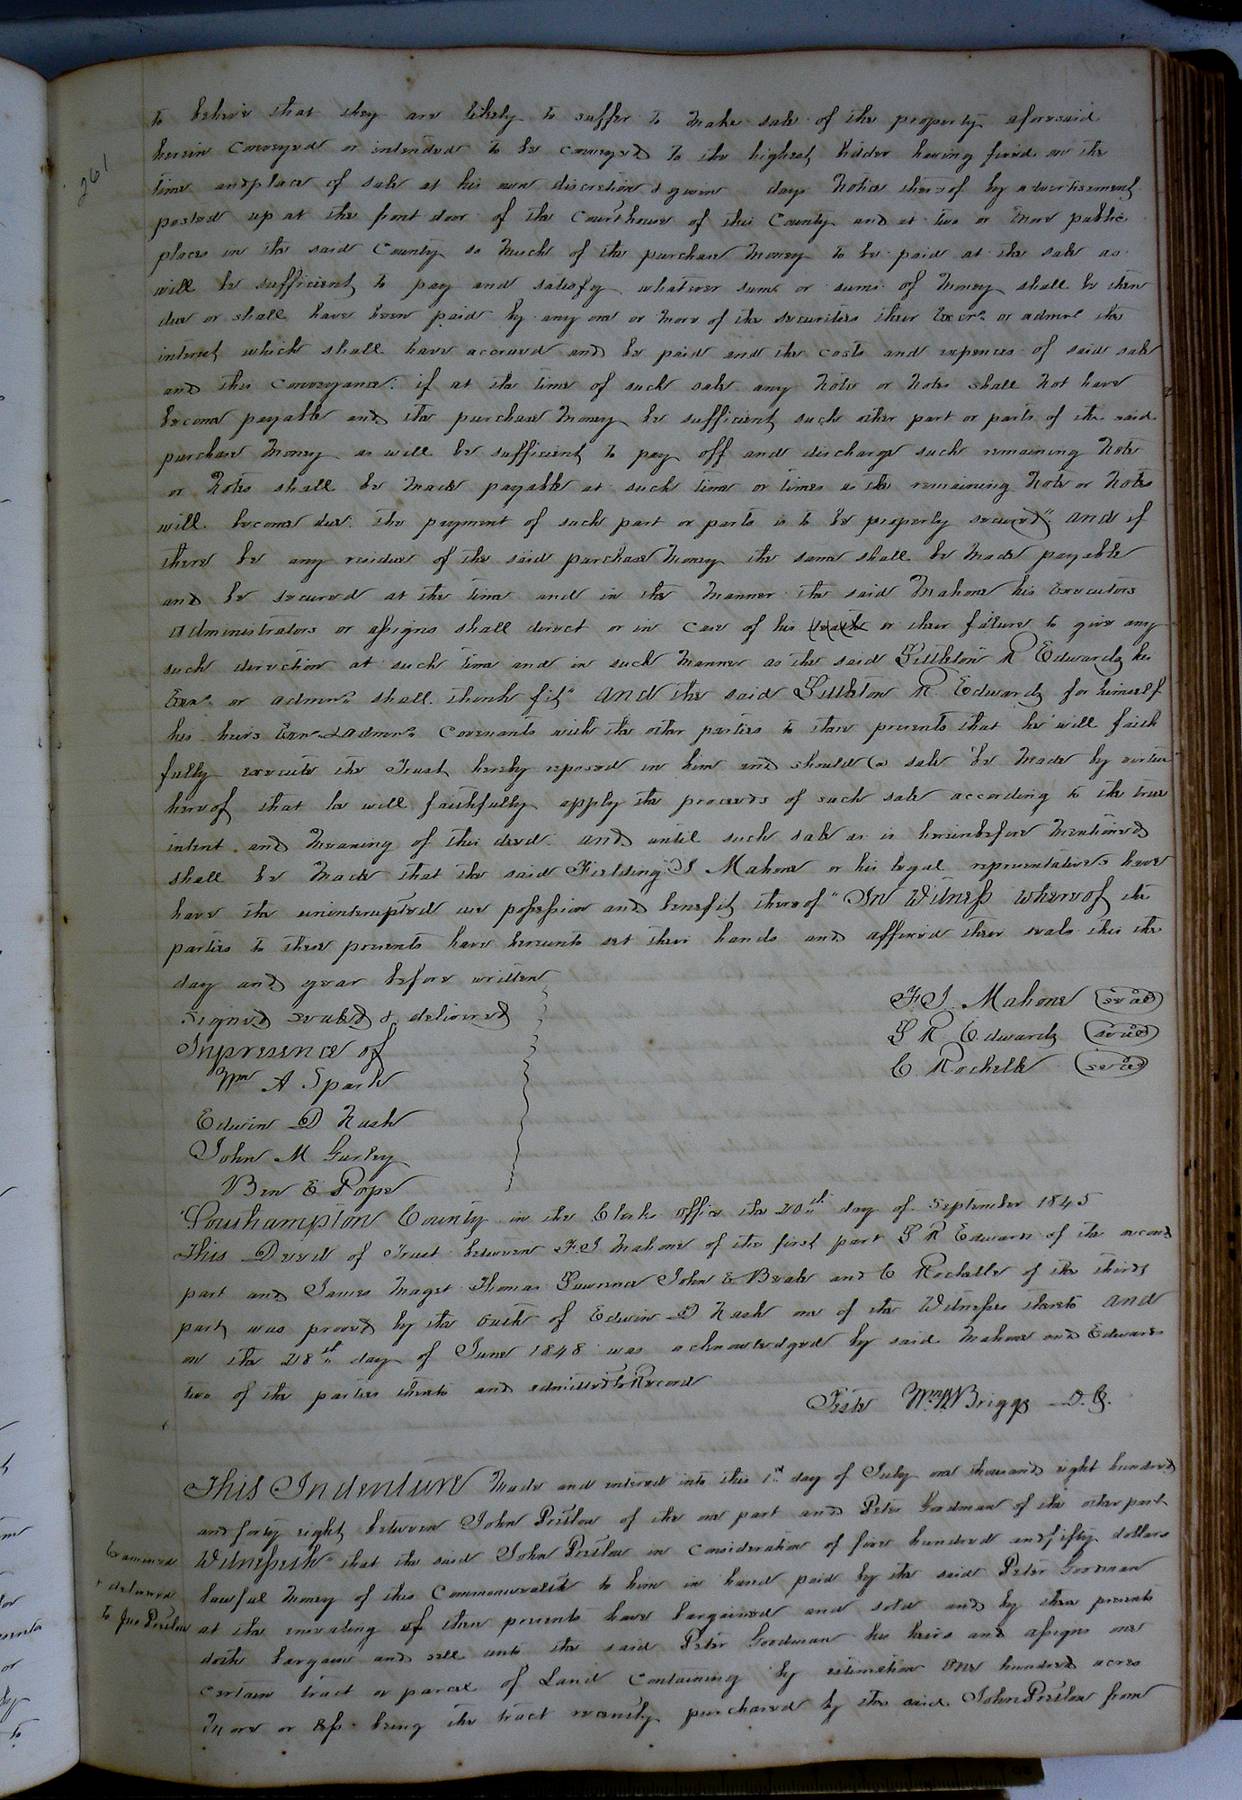 261
to believe that they are likely to suffer to make sale of the property aforesaid
herein conveyed or intended to be conveyed to the highest bidder having fixed on the
time and place of sale at his own discretion & given days notice thereof by advertisement
posted up at the front door of the Courthouse of this County and at two or more public
places in the said County so much of the purchase money to be paid at the sale as
will be sufficient to pay and satisfy whatever sum or sums of money shall be then
due or shall have been paid by any one or more of the securities their Exors or admrs the
interest which shall have accrued and be paid and the costs and expences of said sale
and this conveyance. if at the time of such sale any note or notes shall not have
become payable and the purchase money be sufficient such other part or parts of the said
purchase money as will be sufficient to pay off and discharge such remaining note
or notes shall be made payable at such time or times as the remaining note or notes
will become due. the payment of such part or parts is to be properly secured" and if
there be any residue of the said purchase money the same shall be made payable
and be secured at the time and in the manner the said Mahone his Executors
administrators or assigns shall direct or in case of his or their failure to give any
such direction at such time and in such manner as the said Littleton R Edwards his
Exors or admors shall think fit" and the said Littleton R Edwards for himself
his heirs Exors & admors covenants with the other parties to these presents that he will faith
fully execute the Trust hereby reposed in him and should a sale be made by virtue
hereof that he will faithfully apply the proceeds of such sale according to the true
intent and meaning of this deed. and until such sale as is hereinbefore mentioned
shall be made that the said Fielding J Mahone or his legal representatives have
have the uninterupted use possession and benefit thereof" In Witness whereof the
parties to these presents have hereunto set their hands and affixed their seals this the
day and year before written
Signed sealed & delivered
F J. Mahone (seal)
In presence of
L R Edwards (seal)
C Rochelle (seal)
Wm A Spark
Edwin D Nash
John M Gurley
Ben E Pope
Southampton County in the Clerks office the 20th day of September 1845
This Deed of Trust between F J Mahone of the first part L R Edwards of the second
part and James Maget Thomas Lawrence John E Beale and C Rochelle of the third
part was proved by the oath of Edwin D Nash one of the Witnesses thereto and
on the 28th day of June 1848 was acknowledged by said Mahone and Edwards
two of the parties thereto and admitted to Record
Teste Wm Briggs D. C.
This Indenture made and entered into this 1st day of July one thousand eight hundred
and forty eight between John Preslow of the one part and Peter Goodman of the other part
Examined
Witnesseth" that the said John Preslow in consideration of five hundred and fifty dollars
& delivered
lawful money of this Commonwealth to him in hand paid by the said Peter Goodman
to Jno Preslow
at the ensealing of these presents have bargained and sold and by these presents
doth bargain and sell unto the said Peter Goodman his heirs and assigns one
certain tract or parcel of Land containing by estimation one hundred acres
more or less being the tract recently purchased by the said John Preslow from